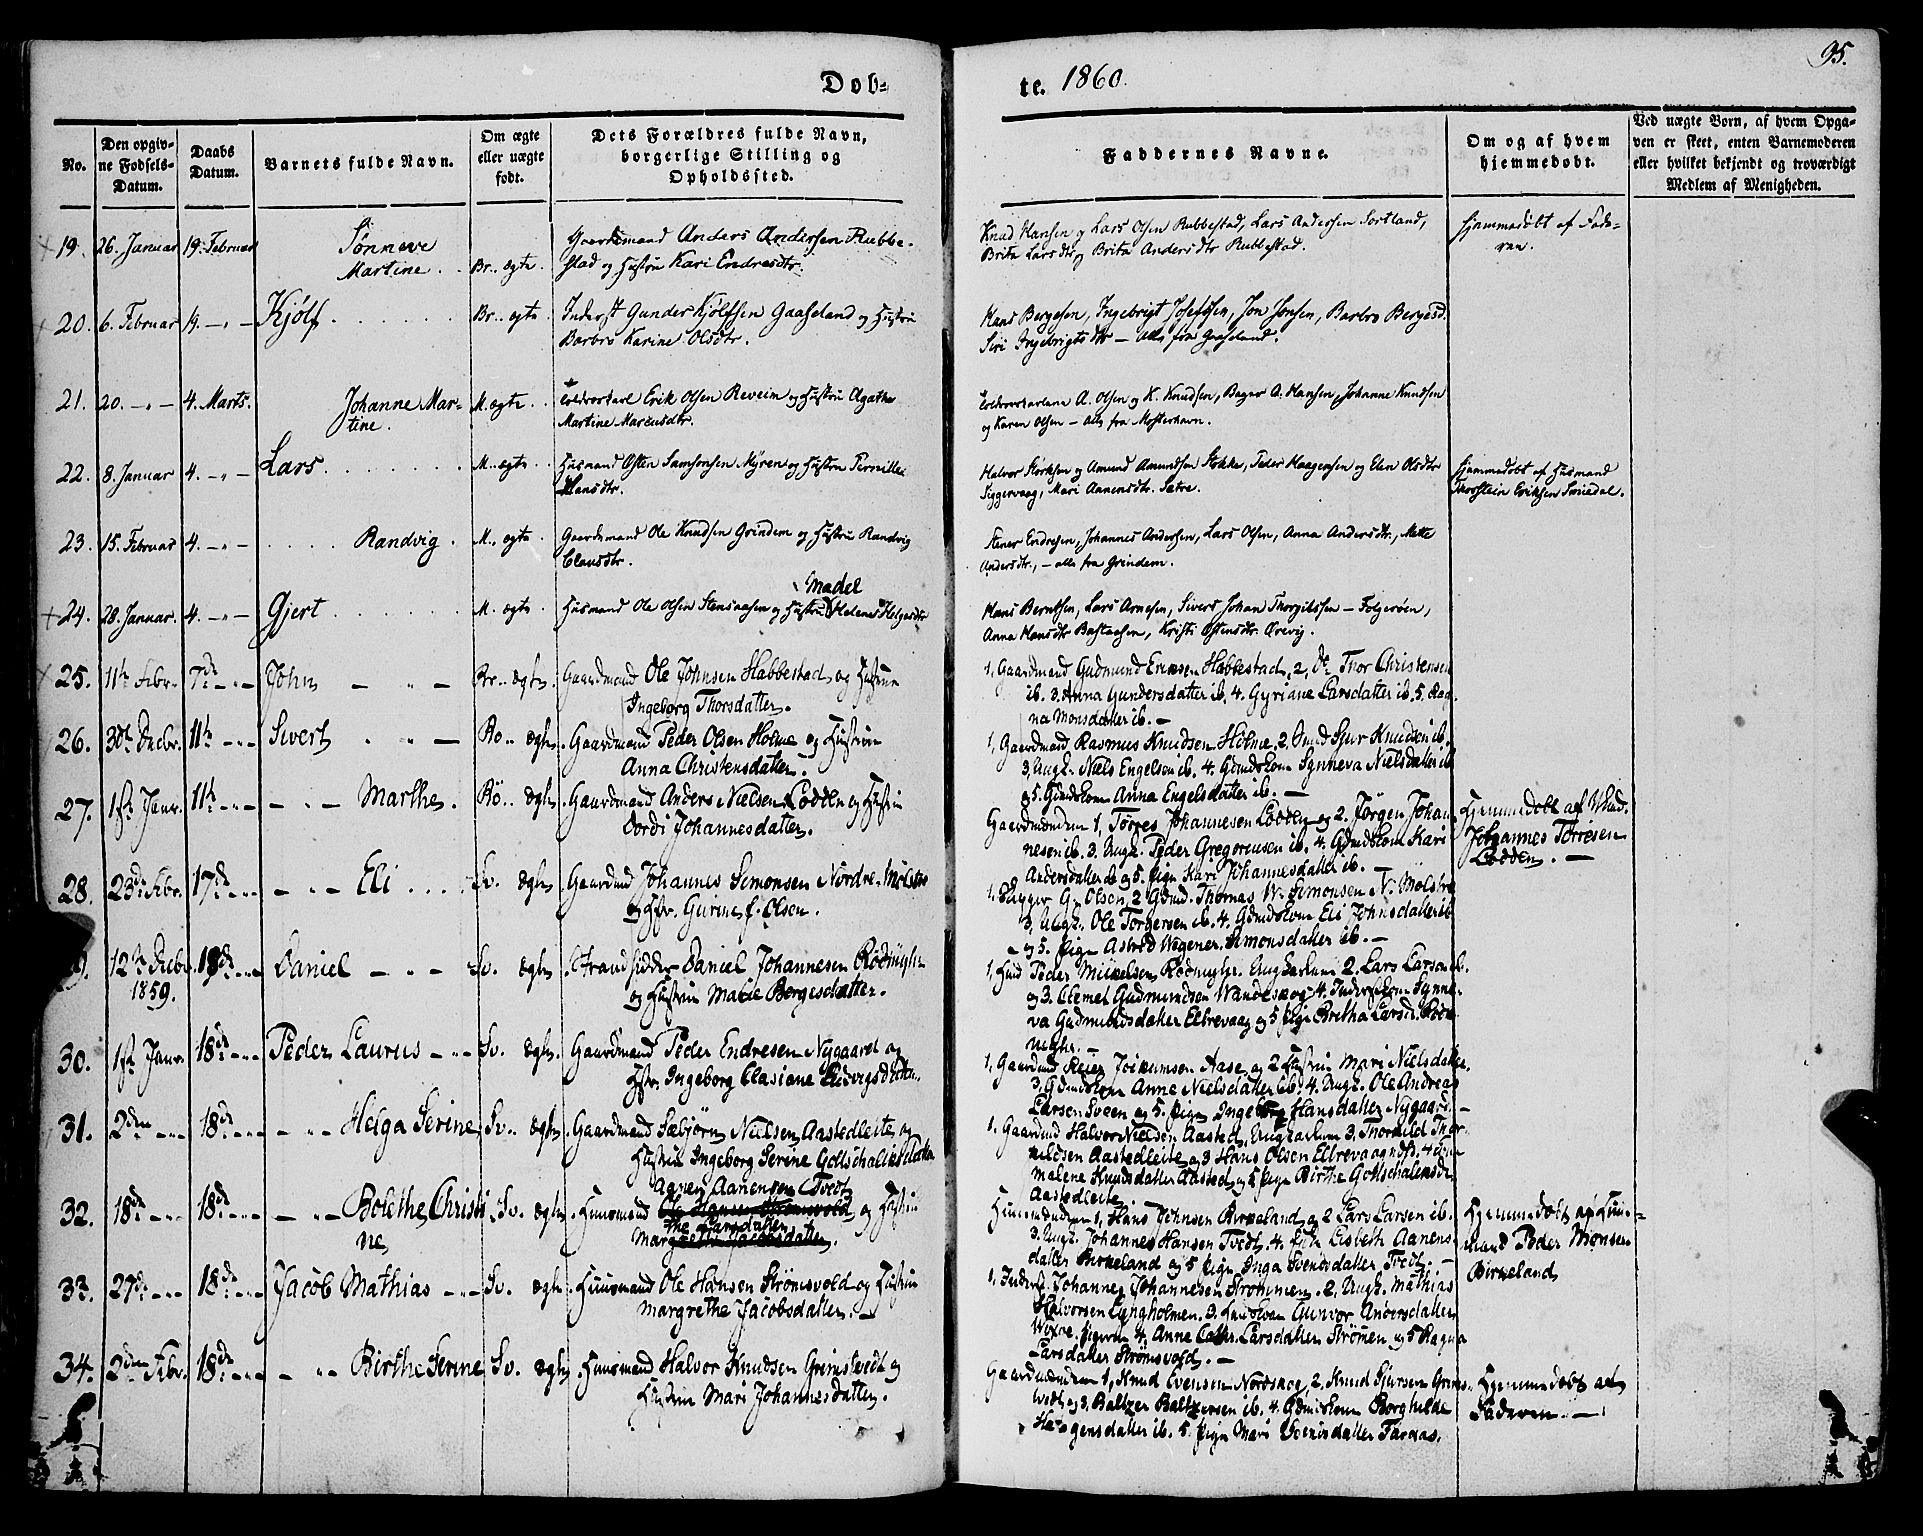 95.
Døb-
te. 1860.
No.
Den opgiv-
ne Fødsels-
Datum.
Daabs
Datum.
Barnets fulde Navn.
Om ægte
eller uægte
født.
Dets Forældres fulde Navn,
borgerlige Stilling og
Opholdssted.
Faddernes Navne.
Om og af hvem
hjemmedøbt.
Ved uægte Børn, af hvem Opga-
ven er skeet, enten Barnemoderen
eller hvilket bekjendt og troværdigt
Medlem af Menigheden.
19. 26. Januar 19. Februar Sønneve
Martine. Br. ægte.
Gaardmand Anders Andersen Rubbe-
stad og Hustru Kari Endresdtr.
Knud Hansen og Lars Olsen Rubbestad, Lars Andersen Sortland,
Brita Larsdtr og Brita Andersdtr Rubbestad.
Hjemmedøbt af Fade-
ren.
20. 6. Februar 19. -"- Kjølf Br. ægte.
Inderst Gunder Kjølfsen Gaaseland og Hustru
Barbro Karine Olsdtr.
Hans Bergesen, Ingebrigt Josefsen, Jon Jonsen, Barbro Bergesd.
Siri Ingebrigtsdtr - alle fra Gaaseland.
21. 20. -"- 4. Marts. Johanne Mar-
tine. M. ægte.
Erik Olsen Reveim og Hustru Agathe
Martine Marcusdtr.
A. Olsen og K. Knudsen, Bager A. Hansen, Johanne Knudsen
og Karen Olsen - alle fra Mosterhavn.
22. 8. Januar 4. -"- Lars M. ægte.
Husmand Østen Samsonsen Myren og Hustru Pernille
Hansdtr.
Halvor Størksen og Amund Amundsen Stokke, Peder Haagensen og Elen Olsdtr
Siggervaag, Mari Aanensdtr. Sætre.
Hjemmedøbt af Husmand
Thorstein Eriksen Smedal.
23. 15. Februar 4. -"- Randvig. M. ægte
Gaardmand Ole Knudsen Grindem og Hustru Randvig
Clausdtr.
Stener Endresen, Johannes Andersen, Lars Olsen, Anna Andersdtr, Mette
Andersdtr., - alle fra Grindem.
24. 28. Januar. 4. -"- Gjert M. ægte.
Madel
Husmand Ole Olsen Stensaasen og Hustru Helene Helgesdtr
Hans Berntsen, Lars Arnesen, Sivert Johan Thorgilsen - Folgerøen,
Anna Hansdtr Bastaasen, Kristi Østensdtr. Ørevig.
25. 11te Febr. 7de -"- John Br. ægte.
Gaardmand Ole Johnsen Habbestad og Hustru
Ingeborg Thorsdatter.
1, Gaardmand Gudmund Ericsen Habbestad, 2, do Thor Christensen
ib. 3. Anna Gundersdatter ib. 4. Gyriane Larsdatter ib. 5. Rag-
na Monsdatter ib. -
26. 30te Decbr. 11te -"- Sivert Rø. ægte.
Gaardmand Peder Olsen Holme og Hustru
Anna Christensdatter.
1, Gaardmand Rasmus Knudsen Holme, 2, Gmd Sjur Knudsen ib.
3, Ungk. Niels Engelsen ib. 4. Gmdskone Synneva Nielsdatter ib
og 5. Gmdskone Anna Engelsdatter ib. -
27. 1ste Janr. 11te -"- Marthe. Rø. ægte.
Gaardmand Anders Nielsen Lodden og Hustru
Dordi Johannesdatter.
Gaardmændene 1, Tørres Johannesen Lodden og 2. Jørgen Johan-
nesen ib. 3. Ungk. Peder Gregoriusen ib. 4. Gmdskone Kari
Andersdatter ib og 5. Pigen Kari Johannesdatter ib. -
Hjemmedøbt af
Johannes Tørresen
Lodden. -
28. 23de Febr. 17de -"- Eli Sv. ægte
Gaardmd Johannes Simonsen Nordre-Mølstre
og Hstr. Gurine f. Olsen.
1, G. Olsen, 2 Gdmd. Thomas W. Simonsen N. Mølstre
3, Ungk. Ole Torgersen ib. 4. Gdmdskone Eli Johnsdatter ib
og 5. Pigen Astrid Wegener Simonsdatter ib. -
12te Decbr.
1859. 18de -"- Daniel Sv. ægte
Strandsidder Daniel Johannesen Rødmyhr
og Hustru Malie Børgesdatter.
1, Peder Mikkelsen Rødmyhr. Ungkarlene 2. Lars Larsen ib.
og 3. Clemet Gudmundsen Wandeskog 4. Inderstkone Synne-
va Gudmundsdatter Ellrevaag og 5 Pigen Britha Larsd. Rød-
myhr. -
30. 1ste Janr. 18de -"- Peder Laurus Sv. ægte.
Gaardmand Peder Endresen Nygaard og
Hstr. Ingeborg Clasiane Ludvigsdatter.
1, Gaardmd Reier Joikumsen Aase og 2 Hustru Mari Nielsdatter
3, Gdmdskone Anne Nielsdatter ib. 4. Ungk. Ole Andreas
Larsen Sveen og 5. Pigen Ingeborg Hansdatter Nygaard. -
31. 2den -"- 18de -"- Helga Serine Sv. ægte.
Gaardmand Sæbjørn Nielsen Aastedleite og
Hustru Ingeborg Serine Gottschalksdatter
1. Gaardmd Halvor Nielsen Aasted, Ungkarlene 3. Thorkild Thor-
kildsen Aastedleite og 3 Hans Olsen Ellrevaag
malene Knudsdatter Aasted og 5 Pigen Birthe Gottschalksdr
Aastedleite
32. 18de -"- 18de -"- Bolethe Christi-
ne Sv. ægte.
Aanen Aanensen Tvedt
Huusmand Ole Hansen Strømsvold og Hustru
the Larsdatter
Margrethe Jacobsdatter.
Huusmændene 1, Hans Johnsen Birkeland og 2 Lars Larsen ib.
3. Ungk. Johannes Hansen Tvedt. 4. Lisbeth Aanens-
datter Birkeland og 5 Pigen Inga Svendsdatter Tvedt. -
Hjemmedøbt af Huus-
mand Peder Monsen
Birkeland
33. 27de -"- 18de -"- Jacob Mathias Sv. ægte.
Huusmand Ole Hansen Strømsvold og Hustru
Margrethe Jacobsdatter. -
1, Inderst Johannes Johannesen Strømmen. 2, Ungk. Mathias
Halvorsen Lyngholmen. 3. Gunvor Andersdatter
Pigerne 4. Anne Cathr. Larsdatter Strømen og 5 Ragna
Larsdatter Strømsvold. -
34. 2den Febr. 18de -"- Birthe Serine Sv. ægte
Huusmand Halvor Knudsen Grimstvedt og
Hustru Mari Johannesdatter.
Gaardmændene 1, Knud Evensen Nordskog, 2. Knud Sjursen Grims-
tvedt og 3, Baltzer Baltzersen ib. 4. Gdmdskone Borghilde
Haagensdatter ib. 5. Pigen Mari Svensdatter Færaas.
Hjemmedøbt af
Faderen. -